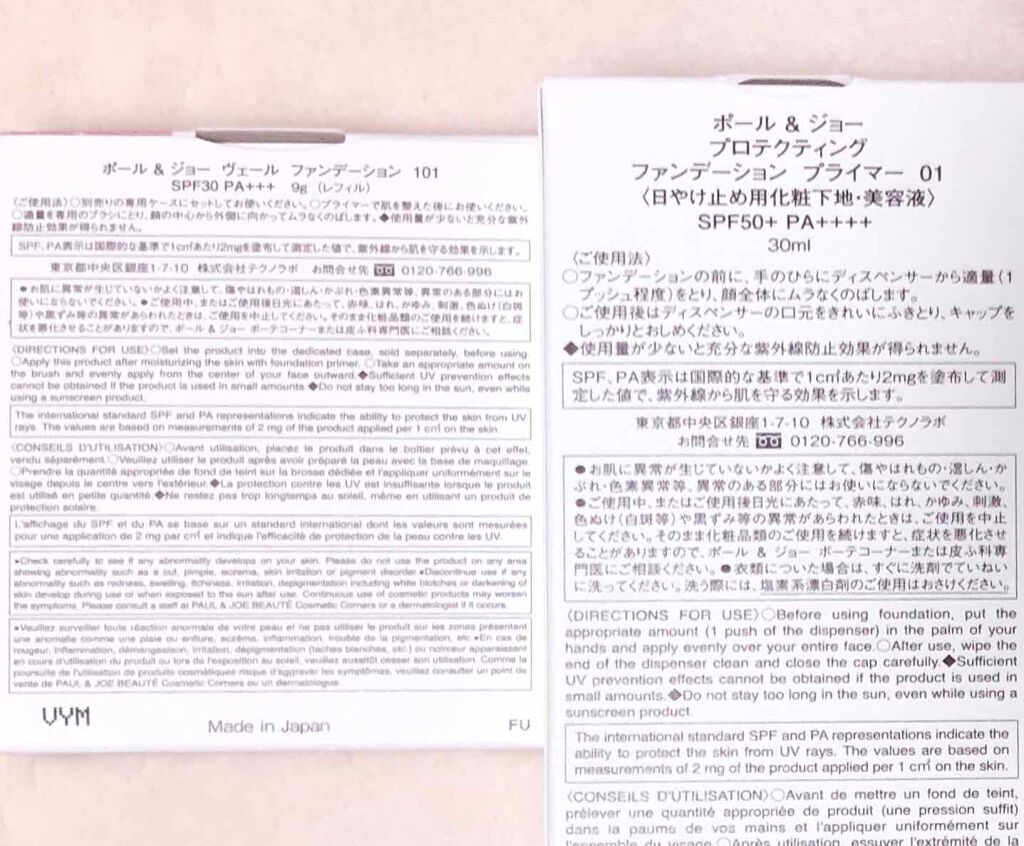 ポール & ジョー ヴェール ファンデーション 101
SPF30 PA+++ 9g (レフィル)
〈ご使用法〉○別売りの専用ケースにセットしてお使いください。○プライマーで肌を整えた後にお使いください。
○適量を専用のブラシにとり、顔の中心から外側に向かってムラなくのばします。◆使用量が少ないと充分な紫外
線防止効果が得られません。
SPF、PA表示は国際的な基準で1c㎡あたり2mgを塗布して測定した値で、紫外線から肌を守る効果を示します。
東京都中央区銀座1-7-10 株式会社テクノラボ お問合せ先 0120-766-996
●お肌に異常が生じていないかよく注意して、傷やはれもの・湿しん・かぶれ・色素異常等、異常のある部分にはお
使いにならないでください。●ご使用中、またはご使用後日光にあたって、赤味、はれ、かゆみ、刺激、色ぬけ(白斑
等)や黒ずみ等の異常があらわれたときは、ご使用を中止してください。そのまま化粧品類のご使用を続けますと、症
状を悪化させることがありますので、ポール & ジョー ボーテコーナーまたは皮ふ科専門医にご相談ください。
〈DIRECTIONS FOR USE〉○Set the product into the dedicated case, sold separately, before using.
○Apply this product after moisturizing the skin with foundation primer. ○Take an appropriate amount on
the brush and evenly apply from the center of your face outward. ◆Sufficient UV prevention effects
cannot be obtained if the product is used in small amounts ◆Do not stay too long in the sun, even while
using a sunscreen product.
The international standard SPF and PA representations indicate the ability to protect the skin from UV
rays. The values are based on measurements of 2 mg of the product applied per 1 c㎡ on the skin.
〈CONSEILS D'UTILISATION〉○Avant utilisation, placez le produit dans le boîtier prévu à cet effet,
vendu séparément. ○Veuillez utiliser le produit après avoir préparé la peau avec la base de maquillage.
○Prendre la quantité appropriée de fond de teint sur la brosse dédiée et appliquer uniformément sur le
visage depuis le centre vers l'extérieur. ◆La protection contre les UV est insuffisante lorsque le produit
est utilisé en petite quantité. ◆Ne restez pas trop longtemps au soleil, même en utilisant un produit de
protection solaire.
L'affichage du SPF et du PA se base sur un standard international dont les valeurs sont mesurées
pour une application de 2 mg par c㎡ et indique l'efficacité de protection de la peau contre les UV.
●Check carefully to see if any abnormality develops on your skin. Please do not use the product on any area
showing abnormality such as a cut, pimple, eczema, skin irritation or pigment disorder. ●Discontinue use if any
abnormality such as redness, swelling, itchiness, irritation, depigmentation including white blotches or darkening of
skin develop during use or when exposed to the sun after use. Continuous use of cosmetic products may worsen
the symptoms. Please consult a staff at PAUL & JOE BEAUTÉ Cosmetic Corners or a dermatologist if it occurs.
●Veuillez surveiller toute réaction anormale de votre peau et ne pas utiliser le produit sur les zones présentant
une anomalie comme une plaie ou enflure, eczéma, inflammation, trouble de la pigmentation, etc. ●En cas de
rougeur, inflammation, démangeaison, irritation, dépigmentation (taches blanches, etc.) ou noirceur apparaissant
en cours d'utilisation du produit ou lors de l'exposition au soleil, veuillez aussitôt cesser son utilisation. Comme la
poursuite de l'utilisation de produits cosmétiques risque d'aggraver les symptômes, veuillez consulter un point de
vente de PAUL & JOE BEAUTÉ Cosmetic Corners ou un dermatologue.
UYM
Made in Japan
FU
ポール & ジョー
プロテクティング
ファンデーション プライマー 01
〈日やけ止め用化粧下地・美容液〉
SPF50+ PA++++
30ml
〈ご使用法〉
○ファンデーションの前に、手のひらにディスペンサーから適量(1
プッシュ程度)をとり、顔全体にムラなくのばします。
○ご使用後はディスペンサーの口元をきれいにふきとり、キャップを
しっかりとおしめください。
◆使用量が少ないと充分な紫外線防止効果が得られません。
SPF、PA表示は国際的な基準で1c㎡あたり2mgを塗布して測
定した値で、紫外線から肌を守る効果を示します。
東京都中央区銀座1-7-10 株式会社テクノラボ
お問合せ先 0120-766-996
●お肌に異常が生じていないかよく注意して、傷やはれもの・湿しん・か
ぶれ・色素異常等、異常のある部分にはお使いにならないでください。
●ご使用中、またはご使用後日光にあたって、赤味、はれ、かゆみ、刺激、
色ぬけ(白斑等)や黒ずみ等の異常があらわれたときは、ご使用を中止
してください。そのまま化粧品類のご使用を続けますと、症状を悪化させ
ることがありますので、ポール & ジョー ボーテコーナーまたは皮ふ科専
門医にご相談ください。●衣類についた場合は、すぐに洗剤でていねい
に洗ってください。洗う際には、塩素系漂白剤のご使用はおさけください。
〈DIRECTIONS FOR USE〉○Before using foundation, put the
appropriate amount (1 push of the dispenser) in the palm of your
hands and apply evenly over your entire face. ○After use, wipe the
end of the dispenser clean and close the cap carefully. ◆Sufficient
UV prevention effects cannot be obtained if the product is used in
small amounts. ◆Do not stay too long in the sun, even while using a
sunscreen product.
The international standard SPF and PA representations indicate the
ability to protect the skin from UV rays. The values are based on
measurements of 2 mg of the product applied per 1 c㎡ on the skin.
〈CONSEILS D'UTILISATION〉○Avant de mettre un fond de teint,
prélever une quantité appropriée de produit (une pression suffit)
dans la paume de vos mains et l'appliquer uniformément sur
l'ensemble du visage. ○Après utilisation, essuyer l'extrémité de la